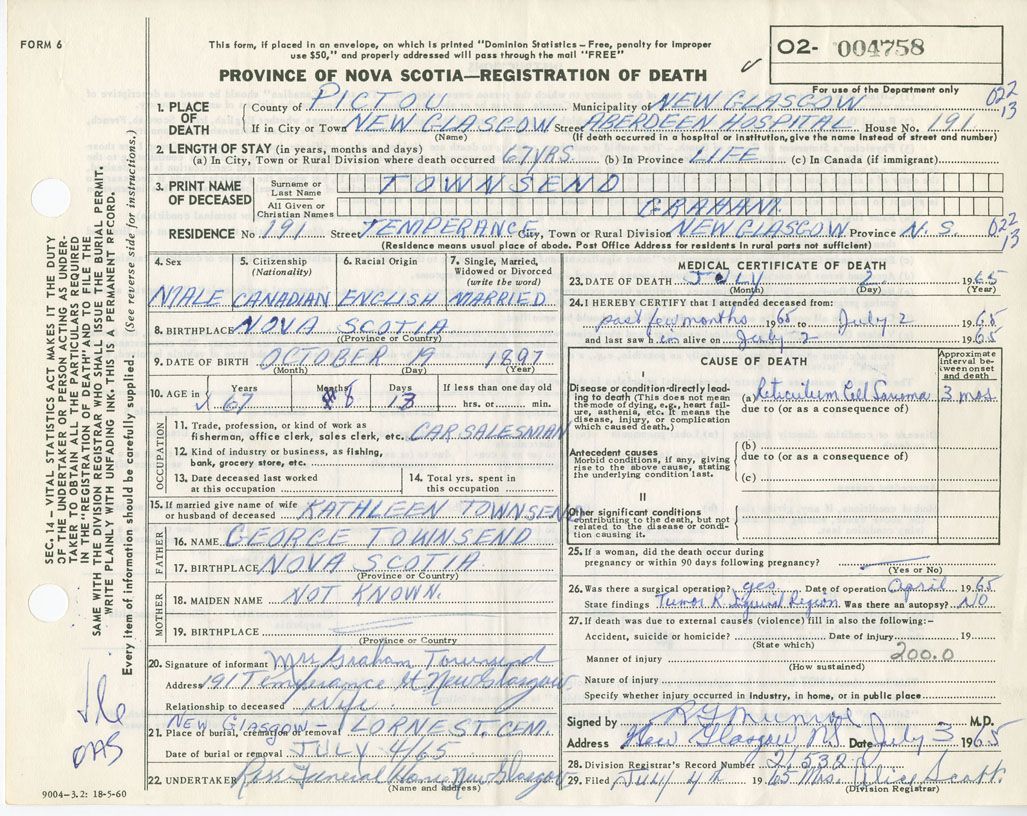 FORM 6
This form, if placed in an envelope, on which is printed "Dominion Statistics – Free, penalty for improper
use $50," and properly addressed will pass through the mail "FREE"
PROVINCE OF NOVA SCOTIA—REGISTRATION OF DEATH
02- 004758
For use of the Department only
022
13
1. PLACE OF DEATH
County of PICTOU Municipality of NEW GLASGOW
If in City or Town NEW GLASGOW Street ABERDEEN HOSPITAL House No. 191
(Name) (If death occurred in a hospital or institution, give the name instead of street and number)
2. LENGTH OF STAY (in years, months and days)
(a) In City, Town or Rural Division where death occurred 67 YRS. (b) In Province LIFE (c) In Canada (if immigrant)
3. PRINT NAME OF DECEASED
Surname or Last Name TOWNSEND
All Given or Christian Names GRAHAM.
RESIDENCE No. 191 Street TEMPERANCE City, Town or Rural Division NEW GLASGOW Province N. S.
022
13
(Residence means usual place of abode. Post Office Address for residents in rural parts not sufficient)
4. Sex
MALE
5. Citizenship
(Nationality)
CANADIAN
6. Racial Origin
ENGLISH
7. Single, Married,
Widowed or Divorced
(write the word)
MARRIED
8. BIRTHPLACE NOVA SCOTIA
(Province or Country)
9. DATE OF BIRTH OCTOBER 19 1897
(Month) (Day) (Year)
10. AGE in
Years Months Days If less than one day old
67 8 13 hrs. or min.
OCCUPATION
11. Trade, profession, or kind of work as
fisherman, office clerk, sales clerk, etc. CAR SALESMAN
12. Kind of industry or business, as fishing,
bank, grocery store, etc.
13. Date deceased last worked
at this occupation
14. Total yrs. spent in
this occupation
15. If married give name of wife
or husband of deceased KATHLEEN TOWNSEND
FATHER
16. NAME GEORGE TOWNSEND
17. BIRTHPLACE NOVA SCOTIA
(Province or Country)
MOTHER
18. MAIDEN NAME NOT KNOWN.
19. BIRTHPLACE
(Province or Country)
20. Signature of informant Mrs Graham Townsend
Address 191 Temperance St New Glasgow
Relationship to deceased Wife
21. Place of burial, cremation or removal NEW GLASGOW – LORNE ST. CEM.
Date of burial or removal JULY 4/65
22. UNDERTAKER Ross Funeral Home New Glasgow
(Name and address)
9004-3.2: 18-5-60
MEDICAL CERTIFICATE OF DEATH
23. DATE OF DEATH JULY 2 1965
(Month) (Day) (Year)
24. I HEREBY CERTIFY that I attended deceased from:
past few months 1965 to July 2 1965
and last saw him alive on July 2 1965
CAUSE OF DEATH
Approximate
interval be-
tween onset
and death
I
Disease or condition directly lead-
ing to death (This does not mean
the mode of dying, e.g., heart fail-
ure, asthenia, etc. It means the
disease, injury, or complication
which caused death.)
(a) Reticulum Cell Sarcoma 3 mos.
due to (or as a consequence of)
Antecedent causes
Morbid conditions, if any, giving
rise to the above cause, stating
the underlying condition last.
(b)
due to (or as a consequence of)
(c)
II
Other significant conditions
contributing to the death, but not
related to the disease or condi-
tion causing it.
25. If a woman, did the death occur during
pregnancy or within 90 days following pregnancy?
(Yes or No)
26. Was there a surgical operation? yes Date of operation April 1965
State findings Tumor R. Inguinal Region Was there an autopsy? NO
27. If death was due to external causes (violence) fill in also the following:–
Accident, suicide or homicide? Date of injury 19
(State which)
Manner of injury 200.0
(How sustained)
Nature of injury
Specify whether injury occurred in industry, in home, or in public place
Signed by R G Munroe M.D.
Address New Glasgow NS Date July 3 1965
28. Division Registrar's Record Number 21532
29. Filed July 4th 1965 Mrs. Alice Scott
(Division Registrar)
SEC. 14 – VITAL STATISTICS ACT MAKES IT THE DUTY
OF THE UNDERTAKER OR PERSON ACTING AS UNDER-
TAKER TO OBTAIN ALL THE PARTICULARS REQUIRED
IN THE "REGISTRATION OF DEATH" AND TO FILE THE
SAME WITH THE DIVISION REGISTRAR WHO SHALL ISSUE THE BURIAL PERMIT.
WRITE PLAINLY WITH UNFADING INK–THIS IS A PERMANENT RECORD.
Every item of information should be carefully supplied. (See reverse side for instructions.)
OAS